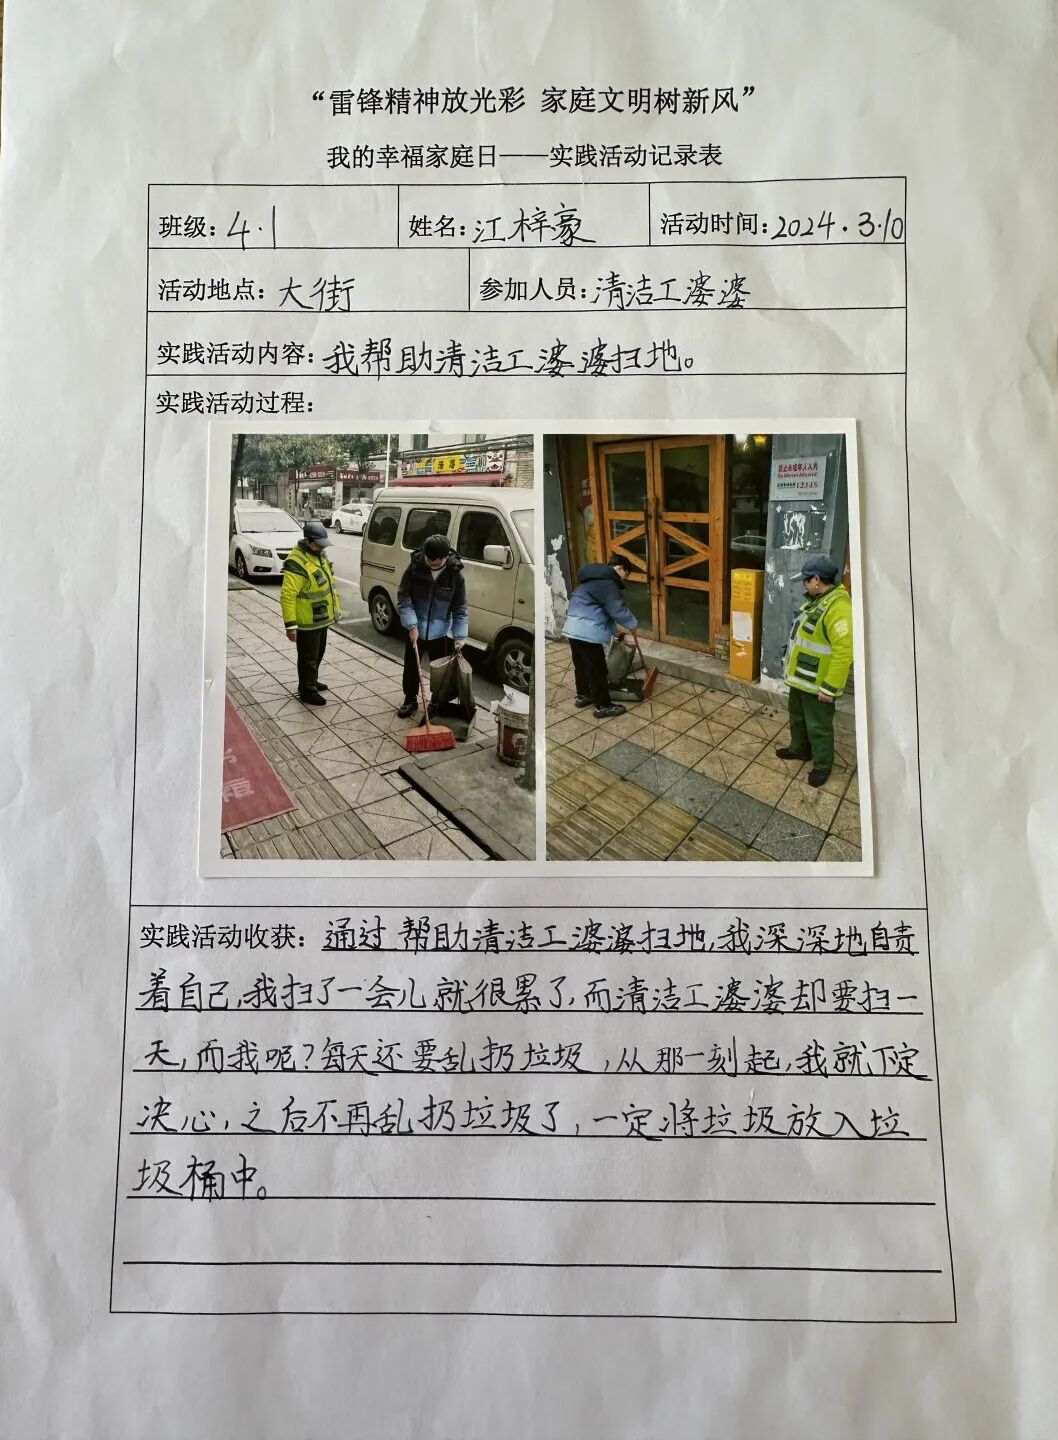 “雷锋精神放光彩 家庭文明树新风”
我的幸福家庭日——实践活动记录表
班级：4.1 姓名：江梓豪 活动时间：2024.3.10
活动地点：大街 参加人员：清洁工婆婆
实践活动内容：我帮助清洁工婆婆扫地。
实践活动过程：
禁止未成年人入内
12345
实践活动收获：通过帮助清洁工婆婆扫地，我深深地自责
着自己，我扫了一会儿就很累了，而清洁工婆婆却要扫一
天，而我呢？每天还要乱扔垃圾，从那一刻起，我就下定
决心，之后不再乱扔垃圾了，一定将垃圾放入垃
圾桶中。